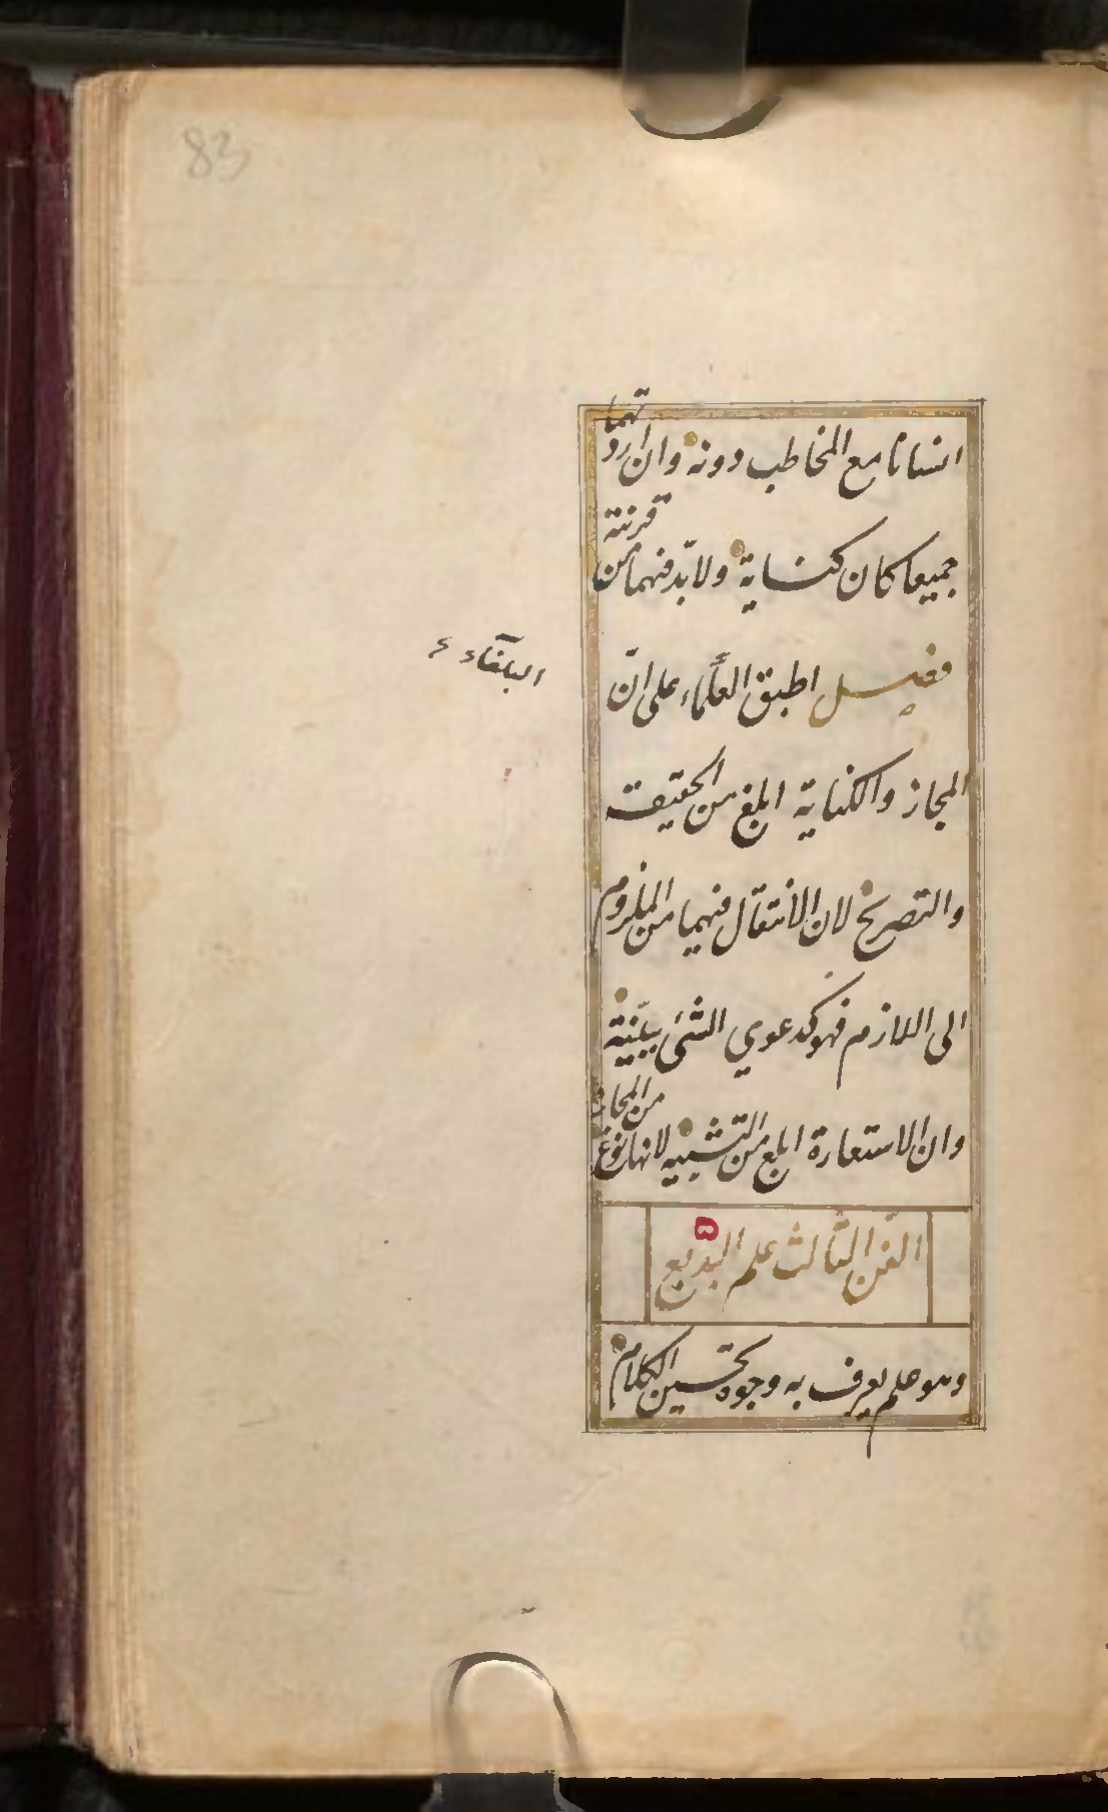 83
انسانا مع المخاطب دونه وان اردتهما
جميعا كان كناية ولا بد فيهما من قرينة
فصل اطبق العلماء على انّ
البلغاء
المجاز والكناية ابلغ من الحقيقة
والتصريح لان الانتقال فيهما من الملزوم
الى اللازم فهو كدعوي الشئ ببيّنة
وان الاستعارة ابلغ من التشبيه لانها نوع من المجاز
الفن الثالث علم البديع
وهو علم يعرف به وجوه تحسين الكلام